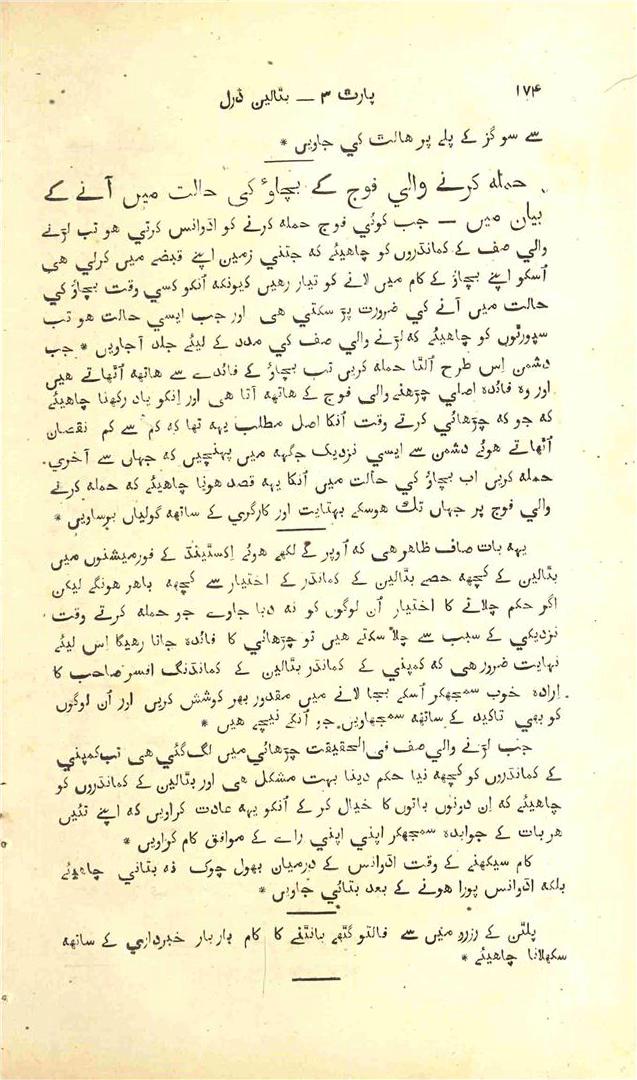 ۱۷۴
پارٹ ۳ — بٹالین ڈرل
سے سو گز کے پلے پر ھالٹ کي جاویں *
حملہ کرنے والي فوج کے بچاؤ کي حالت میں آنے کے
بیان میں — جب کوئي فوج حملہ کرنے کو اڈوانس کرتي ھو تب لڑنے
والي صف کے کمانڈروں کو چاھیئے کہ جتني زمین اپنے قبضے میں کرلي ھي
اُسکو اپنے بچاؤ کے کام میں لانے کو تیار رھیں کیونکہ اُنکو کسي وقت بچاؤ کي
حالت میں آنے کي ضرورت پڑ سکتي ھي اور جب ایسي حالت ھو تب
سپورٹوں کو چاھیئے کہ لڑنے والي صف کي مدد کے لیئے جلد آجاویں * جب
دشمن اِس طرح اُلٹا حملہ کریں تب بچاؤ کے فائدے سے ھاتھہ اُٹھاتے ھیں
اور وہ فائدہ اصلي چڑھنے والي فوج کے ھاتھہ آتا ھي اور اِنکو یاد رکھنا چاھیئے
کہ جو کہ چڑھائي کرتے وقت اُنکا اصل مطلب یہہ تھا کہ کم سے کم نقصان
اُٹھاتے ھوئے دشمن سے ایسي نزدیک جگہہ میں پہنچیں کہ جہاں سے آخري
حملہ کریں اب بچاؤ کي حالت میں اُنکا یہہ قصد ھونا چاھیئے کہ حملہ کرنے
والي فوج پر جہاں تک ھوسکے بہتایت اور کارگري کے ساتھہ گولیاں برساویں *
یہہ بات صاف ظاھر ھي کہ اُوپر کے لکھے ھوئے اِکسٹینڈ کے فورمیشنوں میں
بٹالین کے کچھہ حصے بٹالین کے کمانڈر کے اختیار سے کچھہ باھر ھونگے لیکن
اگر حکم چلانے کا اختیار اُن لوگوں کو نہ دیا جاوے جو حملہ کرتے وقت
نزدیکي کے سبب سے چلا سکتے ھیں تو چڑھائي کا فائدہ جاتا رھیگا اِس لیئے
نہایت ضرور ھي کہ کمپني کے کمانڈر بٹالین کے کمانڈنگ افسر صاحب کا
اِرادہ خوب سمجھکر اُسکے بجا لانے میں مقدور بھر کوشش کریں اور اُن لوگوں
کو بھي تاکید کے ساتھہ سمجھاویں جو اُنکے نیچے ھیں *
جب لڑنے والي صف في الحقیقت چڑھائي میں لگ گئي ھي تب کمپني
کے کمانڈروں کو کچھہ نیا حکم دینا بہت مشکل ھي اور بٹالین کے کمانڈروں کو
چاھیئے کہ اِن دونوں باتوں کا خیال کر کے اُنکو یہہ عادت کراویں کہ اپنے تئیں
ھر بات کے جوابدہ سمجھکر اپني اپني راے کے موافق کام کراویں *
کام سیکھنے کے وقت اڈوانس کے درمیان بھول چوک نہ بتاني چاھیئے
بلکہ اڈوانس پورا ھونے کے بعد بتائي جاویں *
پلٹن کے رزرو میں سے فالتو گٹھے بانٹنے کا کام باربار خبرداري کے ساتھہ
سکھلانا چاھیئے *